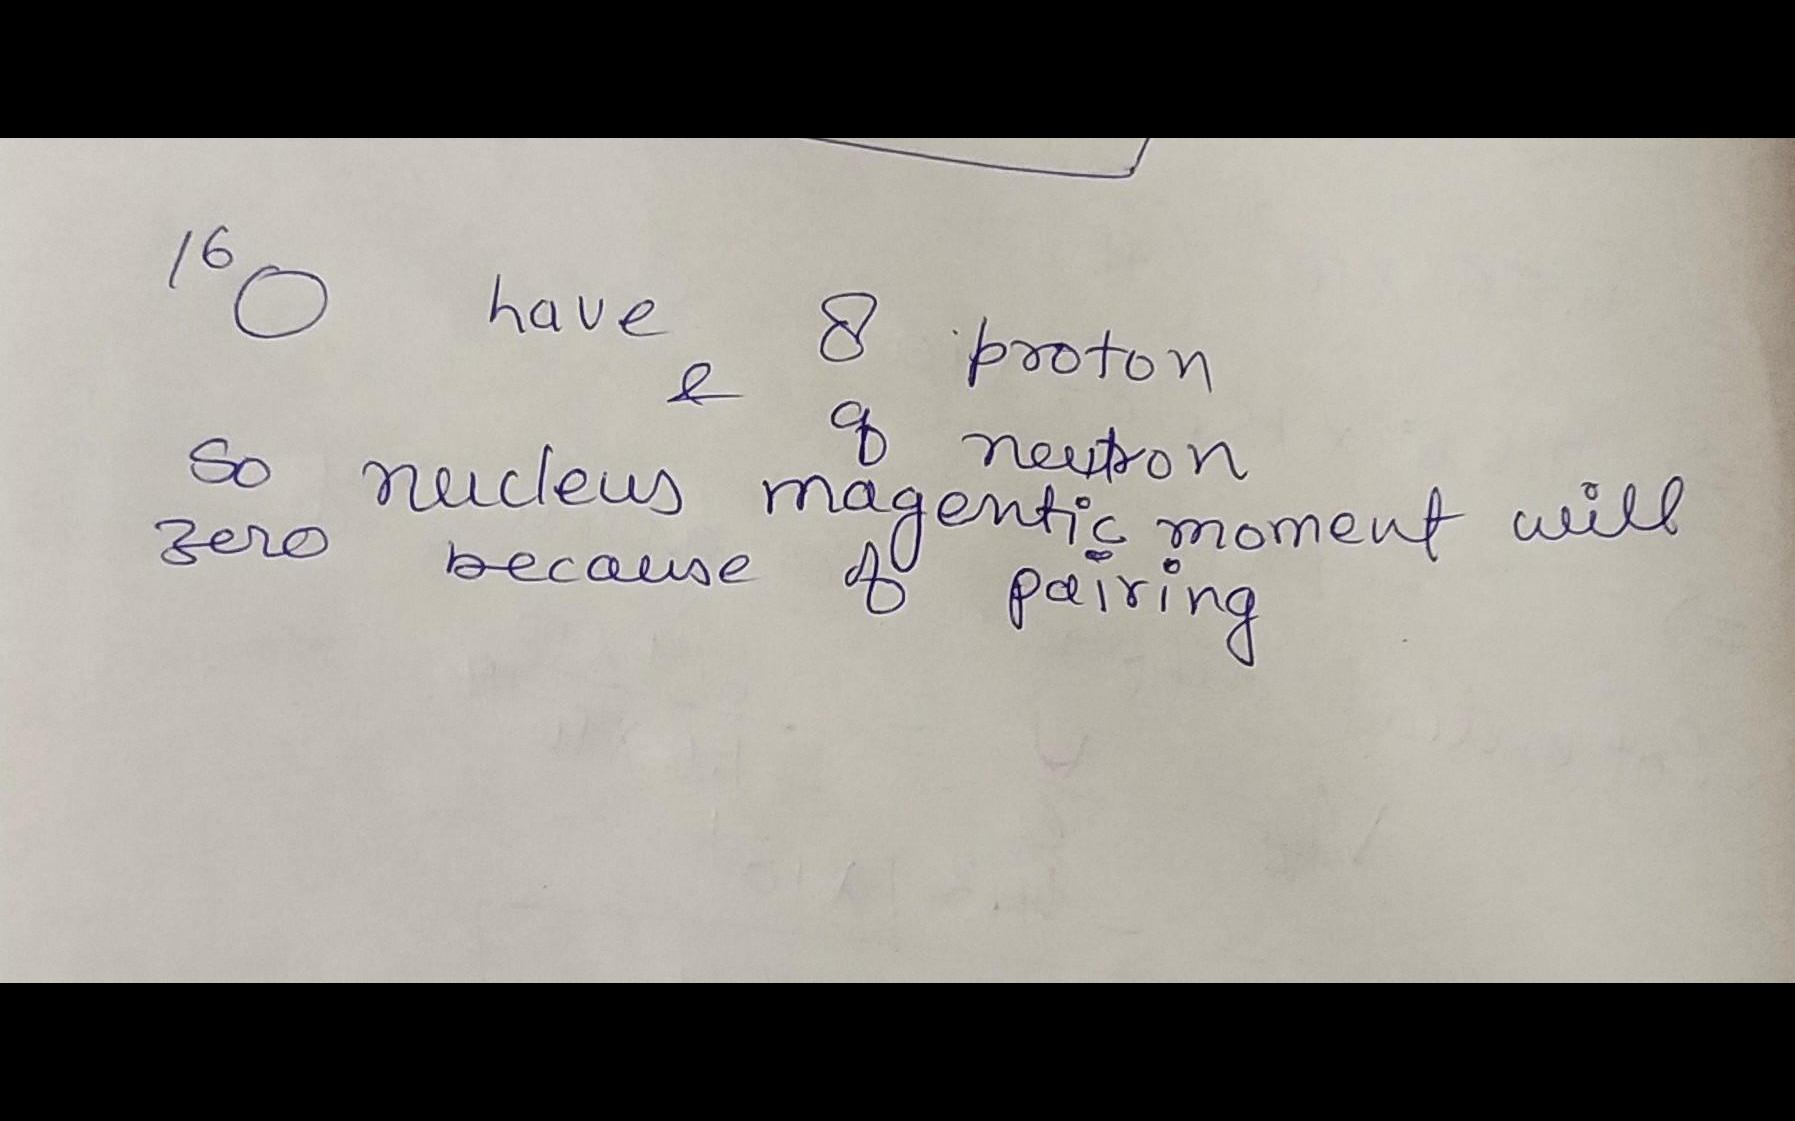 16O have 8 proton
& 8 neutron
So nucleus magentic moment will
zero because of pairing